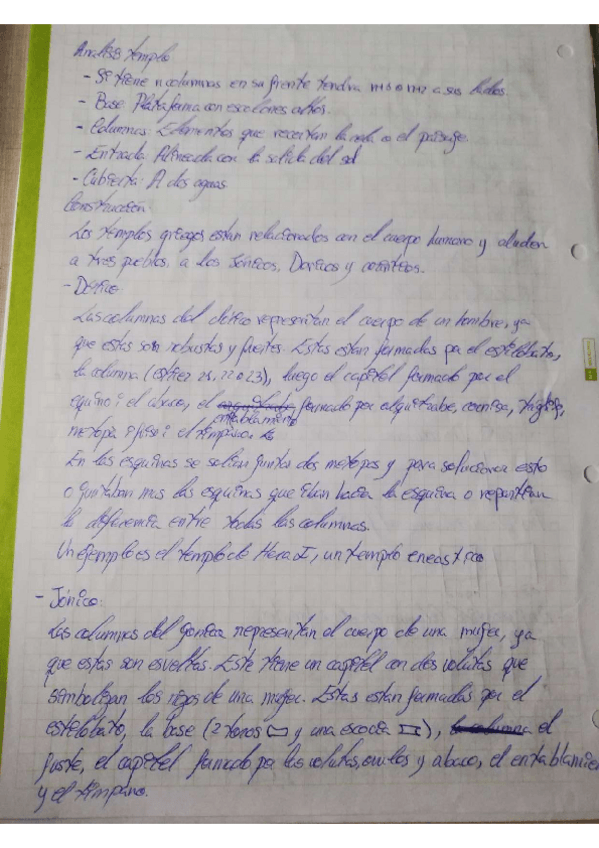 Analisis templo
- Si tiene n columnas en su frente tendra n+5 o n+7 a sus lados.
- Base Plataforma con escalones altos.
- Columnas: Elementos que recortan la o el paisaje.
- Entrada: Alineada con la salida del sol
- Cubierta: A dos aguas
Construcción:
Los templos griegos estan relacionados con el cuerpo humano y aluden
a tres pueblos, a los Jónicos, Doricos y corintios.
- Dórico:
Las columnas del dórico representan el cuerpo de un hombre, ya
que estas son robustas y fuertes. Estas estan formadas por el estelobato,
la columna ( 21, 22 o 23), luego el capitel formado por el
equino i el abaco, el entablamento formado por alquitrabe, cornisa,
metopa i friso i el timpano.
En las esquinas se solian juntar dos metopas y para solucionar esto
o juntaban mas las esquinas que iban hacia la esquina o repartian
la diferencia entre todas las columnas.
Un ejemplo es el templo de Hera I, un templo eneastilo
- Jónico:
Las columnas del jonico representan el cuerpo de una mujer, ya
que estas son esveltas. Este tiene un capitel con dos volutas que
simbolizan los rizos de una mujer. Estas estan formadas por el
estelobato, la base (2 toros y una escocia), el
fuste, el capitel formado por las volutas, ovulos y abaco, el entablamie
y el timpano.